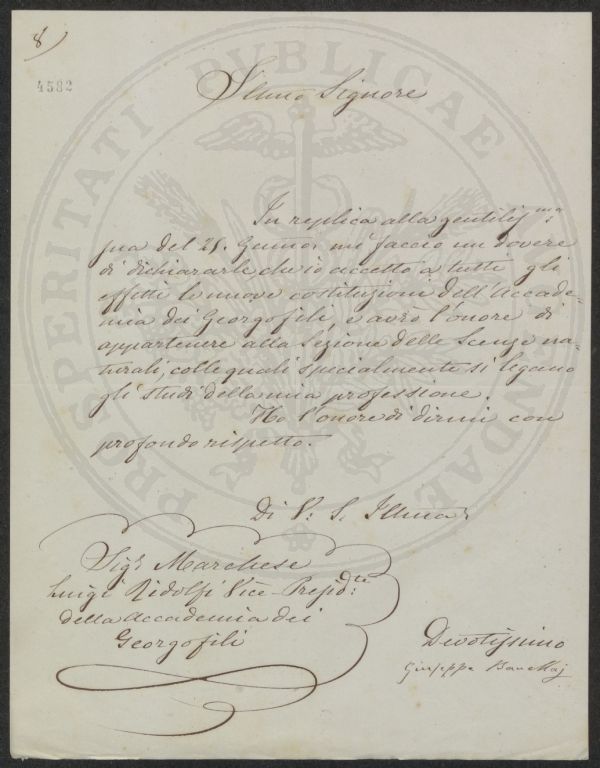 8)
4582
PROSPERITATI PVBLICAE AVGENDAE
Illmo Signore
In replica alla gentilissma
sua del 25. Genno. mi faccio un dovere
di dichiararle che io accetto a tutti gli
effetti le nuove costituzioni dell'Accade=
mia dei Georgofili, e avrò l'onore di
appartenere alla Sezione delle Scenze na=
turali, colle quali specialmente si legano
gli studi della mia professione.
Ho l'onore di dirmi con
profondo rispetto.
Di V: S. Illma
Sigr Marchese
Luigi Ridolfi Vice-Presidte:
della Accademia dei
Georgofili
Devotissimo
Giuseppe